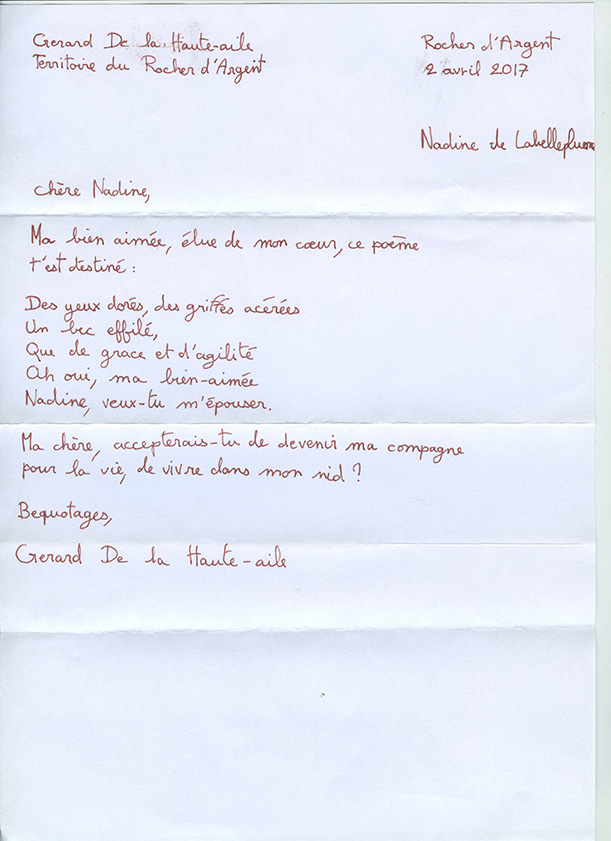 Gerard De la Haute-aile
Territoire du Rocher d'Argent
Rocher d'Argent
2 avril 2017
Nadine de Labelleplume
chère Nadine,
Ma bien aimée, élue de mon cœur, ce poème
t'est destiné :
Des yeux dorés, des griffes acérées
Un bec effilé,
Que de grace et d'agilité
Ah oui, ma bien-aimée
Nadine, veux-tu m'épouser.
Ma chère, accepterais-tu de devenir ma compagne
pour la vie, de vivre dans mon nid ?
Bequotages,
Gerard De la Haute-aile